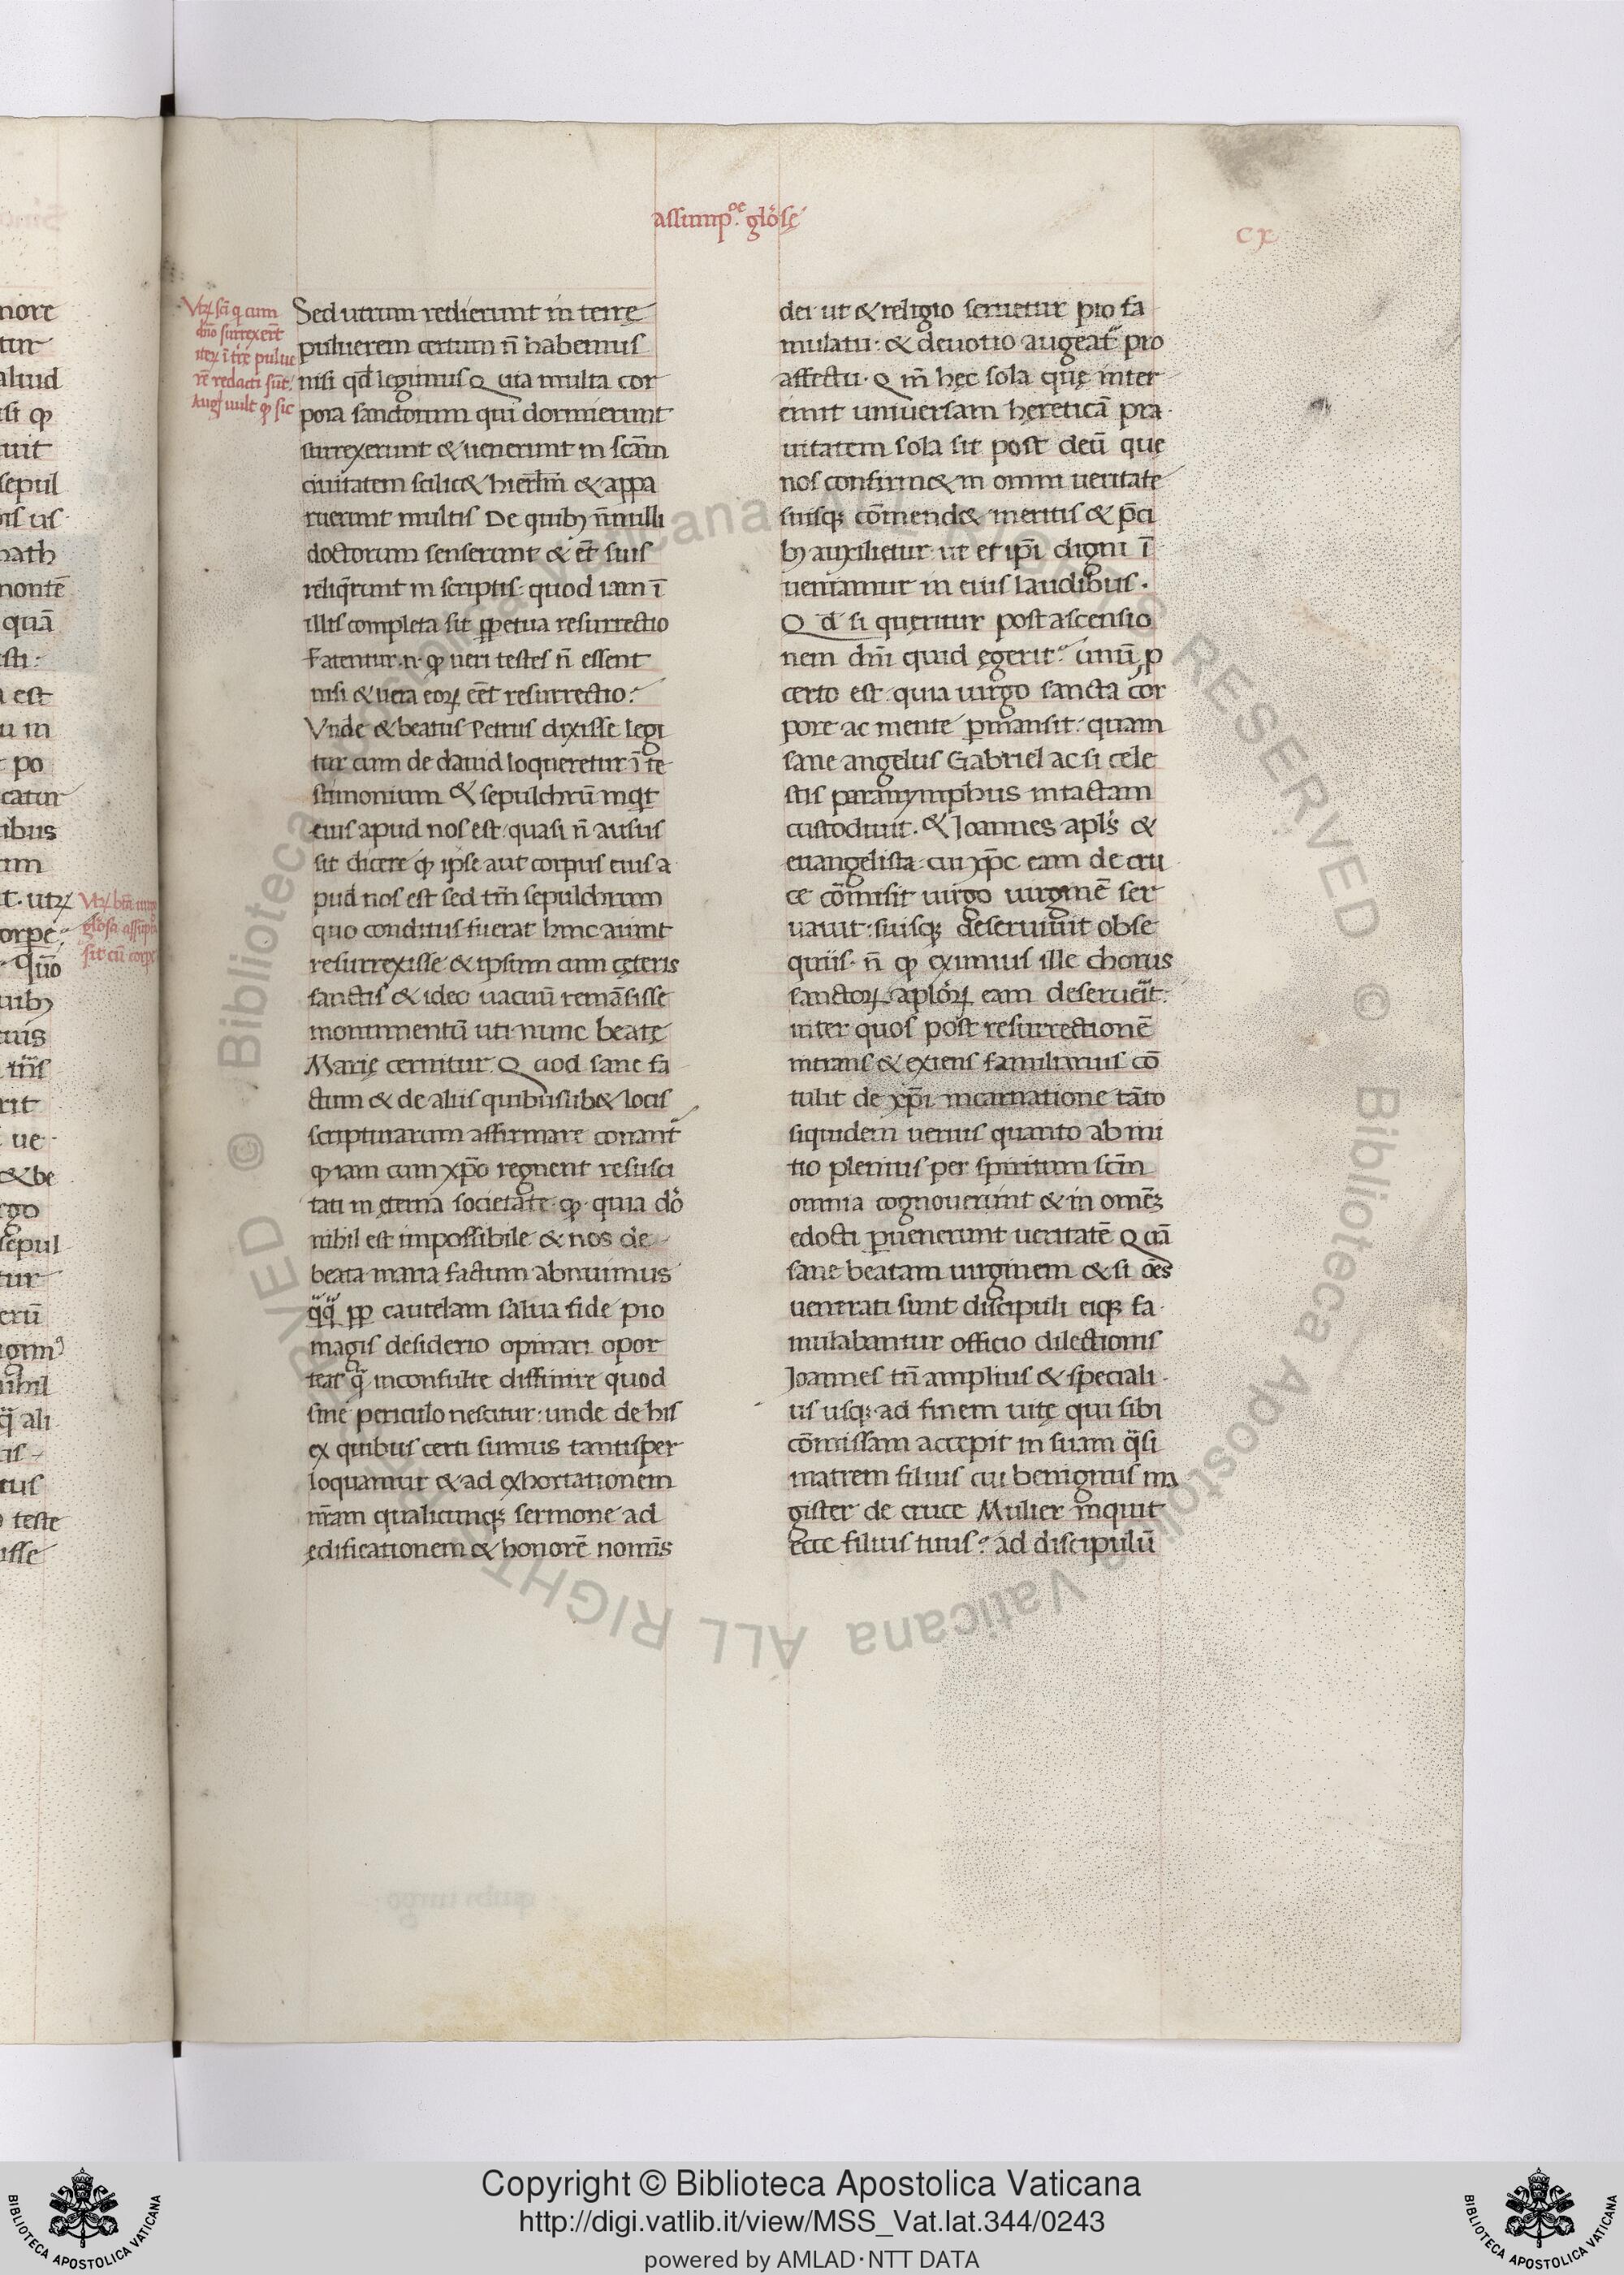 assump.oe glo͂sę
cx
Vtrꝝ sc͂i q cum
dn͂o surrexer͂t
iterꝝ ī ter͂re pulue
re͂ redacti su͂t.
Aug uult ꝙ sic
Sed utrum redierunt in terrę
puluerem certum n͂ habemus
nisi qd͂ legimus Quia multa cor
pora sanctorum qui dormierunt
surrexerunt & uenerunt in sc͂am
ciuitatem scilic& hierl͂m & appa
ruerunt multis De quibꝫ n͂nulli
doctorum senserunt & et͂ suis
reliq͂runt in scriptis: quod iam ī
illis completa sit ꝑpetua resurrectio
Fatentur .n. ꝙ ueri testes n͂ essent
nisi & uera eoꝝ ee͂t resurrectio.
Vnde & beatus Petrus dixisse legi
tur cum de dauid loqueretur ī te
stimonium & sepulchru͂ inqt
eius apud nos est: quasi n͂ ausus
sit dicere ꝙ ipse aut corpus eius a
pud nos est sed tm͂ sepulchrum
quo conditus fuerat hinc aiunt
resurrexisse & ipsum cum cęteris
sanctis & ideo uacuu͂ rema͂sisse
monumentu͂ uti nunc beatę
Marię cernitur. Quod sane fa
ctum & de aliis quibuslib& locis
scripturarum affirmare conant͂
ꝙ iam cum xp͂o regnent resusci
tati in ęterna societate ꝙ quia do͂
nihil est impossibile & nos de
beata maria factum abnuimus
q͂q͂ ꝓp cautelam salua fide pio
magis desiderio opinari opor
teat q͂ inconsulte diffinire quod
sine periculo nescitur: unde de his
ex quibus certi sumus tantisper
loquamur & ad exhortationem
nr͂am qualicunqꝫ sermone ad
ędificationem & honore͂ nomi͂s
dei ut & religio seruetur pro fa
mulatu: & deuotio augeat͂ pro
affectu. Qm͂ hęc sola quę inter
emit uniuersam hęretica͂ pra
uitatem sola sit post deu͂ que
nos confirm& in omni ueritate
suisqꝫ co͂mend& meritis & p͂ci
bꝫ auxilietur: ut et ip͂i digni ī
ueniamur in eius laudibus.
Qd͂ si quęritur post ascensio
nem dn͂i quid ęgerit? unu͂ ꝓ
certo est quia uirgo sancta cor
pore ac mente ꝑmansit: quam
sane angelus Gabriel ac si cele
stis paranymphus intactam
custodiuit. & Joannes apl͂s &
euangelista cui xp͂c eam de cru
ce co͂misit uirgo uirgine͂ ser
uauit: suisqꝫ deseruiuit obse
quiis. n͂ ꝙ eximius ille chorus
sanctoꝝ apl͂oꝝ eam deseruerit:
inter quos post resurrectione͂
intrans & exiens familiarius co͂
tulit de xp͂i incarnatione ta͂to
siquidem uerius quanto ab ini
tio plenius per spiritum sc͂m
omnia cognouerunt & in omne͂
edocti ꝑuenerunt ueritate͂ Qua͂
sane beatam uirginem & si oe͂s
uenerati sunt discipuli eiqꝫ fa
mulabantur officio dilectionis
Joannes tn͂ amplius & speciali
us usqꝫ ad finem uitę qui sibi
co͂missam accepit in suam q͂si
matrem filius cui benignus ma
gister de cruce Mulier inquit
ecce filius tuus? ad discipulu͂
Copyright © Biblioteca Apostolica Vaticana
http://digi.vatlib.it/view/MSS_Vat.lat.344/0243
powered by AMLAD·NTT DATA